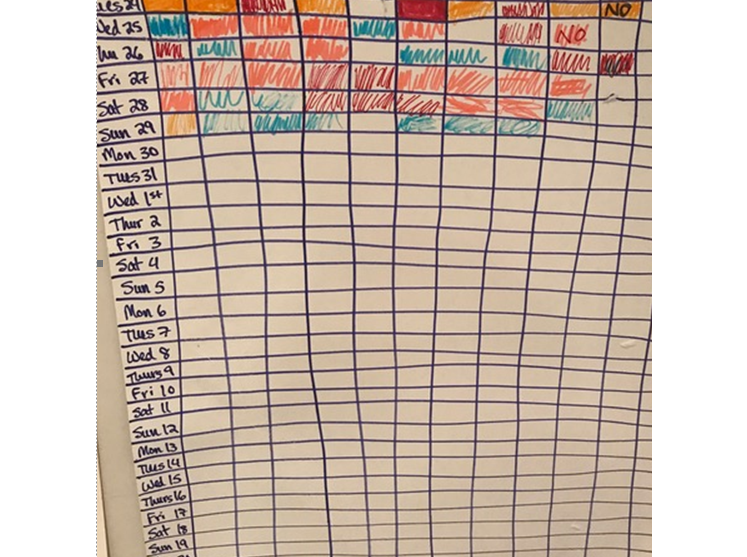 24 NO
Wed 25 NO
26
Fri 27
Sat 28
Sun 29
Mon 30
Tues 31
Wed 1st
Thur 2
Fri 3
Sat 4
Sun 5
Mon 6
Tues 7
Wed 8
Thurs 9
Fri 10
Sat 11
Sun 12
Mon 13
Tues 14
Wed 15
Thurs 16
Fri 17
Sat 18
Sun 19